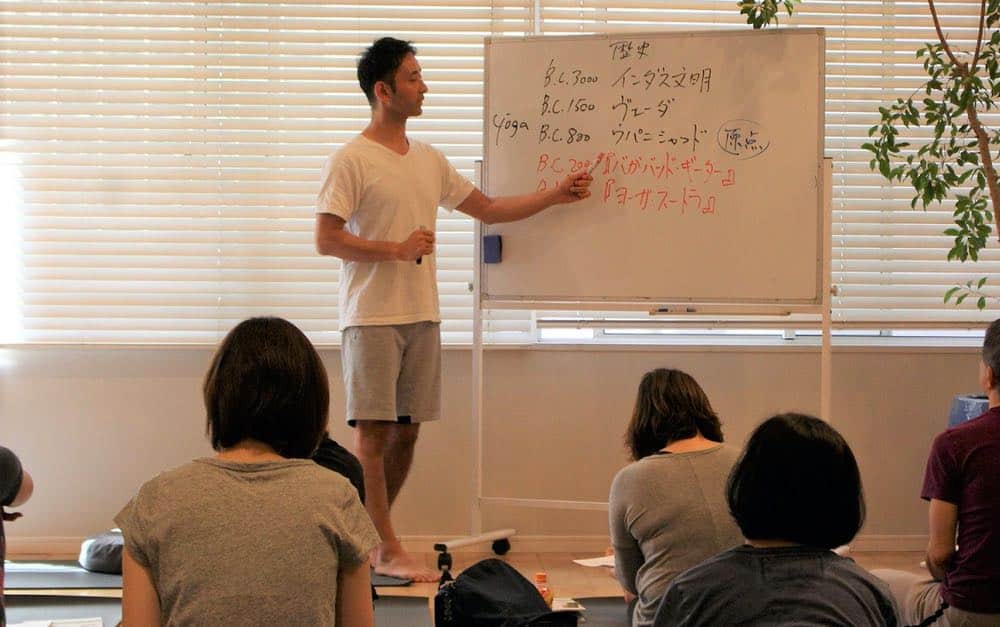 歴史
B.C.3000 インダス文明
B.C.1500 ヴェーダ
yoga B.C.800 ウパニシャッド 原点
B.C.200 『バガバッド・ギーター』
『ヨーガ・スートラ』